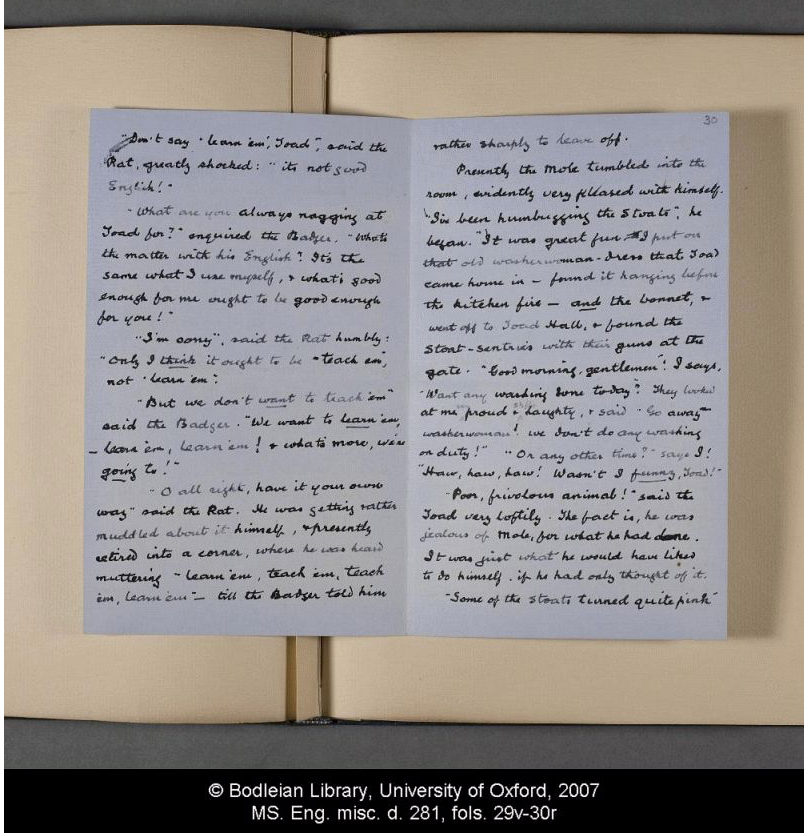 "Don't say 'learn 'em,' Toad", said the
Rat, greatly shocked: "its not good
English!"
"What are you always nagging at
Toad for?" enquired the Badger. "What's
the matter with his English? It's the
same what I use myself, & what's good
enough for me ought to be good enough
for you!"
"I'm sorry", said the Rat humbly:
"Only I think it ought to be "teach 'em",
not 'learn 'em'.
"But we don't want to teach 'em"
said the Badger. "We want to learn 'em,
– learn 'em, learn 'em! & what's more, we're
going to!"
"O all right, have it your own
way" said the Rat. He was getting rather
muddled about it himself, & presently
retired into a corner, where he was heard
muttering "learn 'em, teach 'em, teach
'em, learn 'em" – till the Badger told him
30
rather sharply to leave off.
Presently the Mole tumbled into the
room, evidently very pleased with himself.
"I've been humbugging the Stoats", he
began. "It was great fun. I put on
that old washerwoman-dress that Toad
came home in – found it hanging before
the kitchen fire – and the bonnet, &
went off to Toad Hall, & found the
Stoat-sentries with their guns at the
gate. "Good morning, gentlemen"! I says,
"Want any washing done to-day"? They looked
at me proud & haughty, & said "Go away
washerwoman! we don't do any washing
on duty!" "Or any other time?" says I!
"Haw, haw, haw! Wasn't I funny, Toad!"
"Poor, frivolous animal!" said the
Toad very loftily. The fact is, he was
jealous of Mole, for what he had done.
It was just what he would have liked
to do himself, if he had only thought of it.
"Some of the stoats turned quite pink"
© Bodleian Library, University of Oxford, 2007
MS. Eng. misc. d. 281, fols. 29v-30r